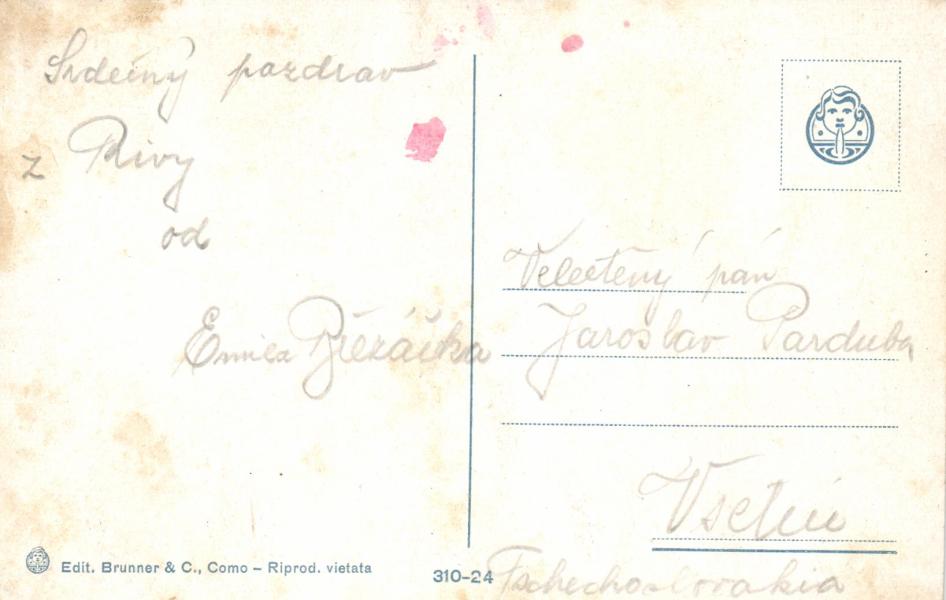 Srdečný pozdrav
z Rivy
od
Velectěný pán
Jaroslav Parduba
Vsetín
Tschechoslovakia
Edit. Brunner & C., Como – Riprod. vietata
310-24